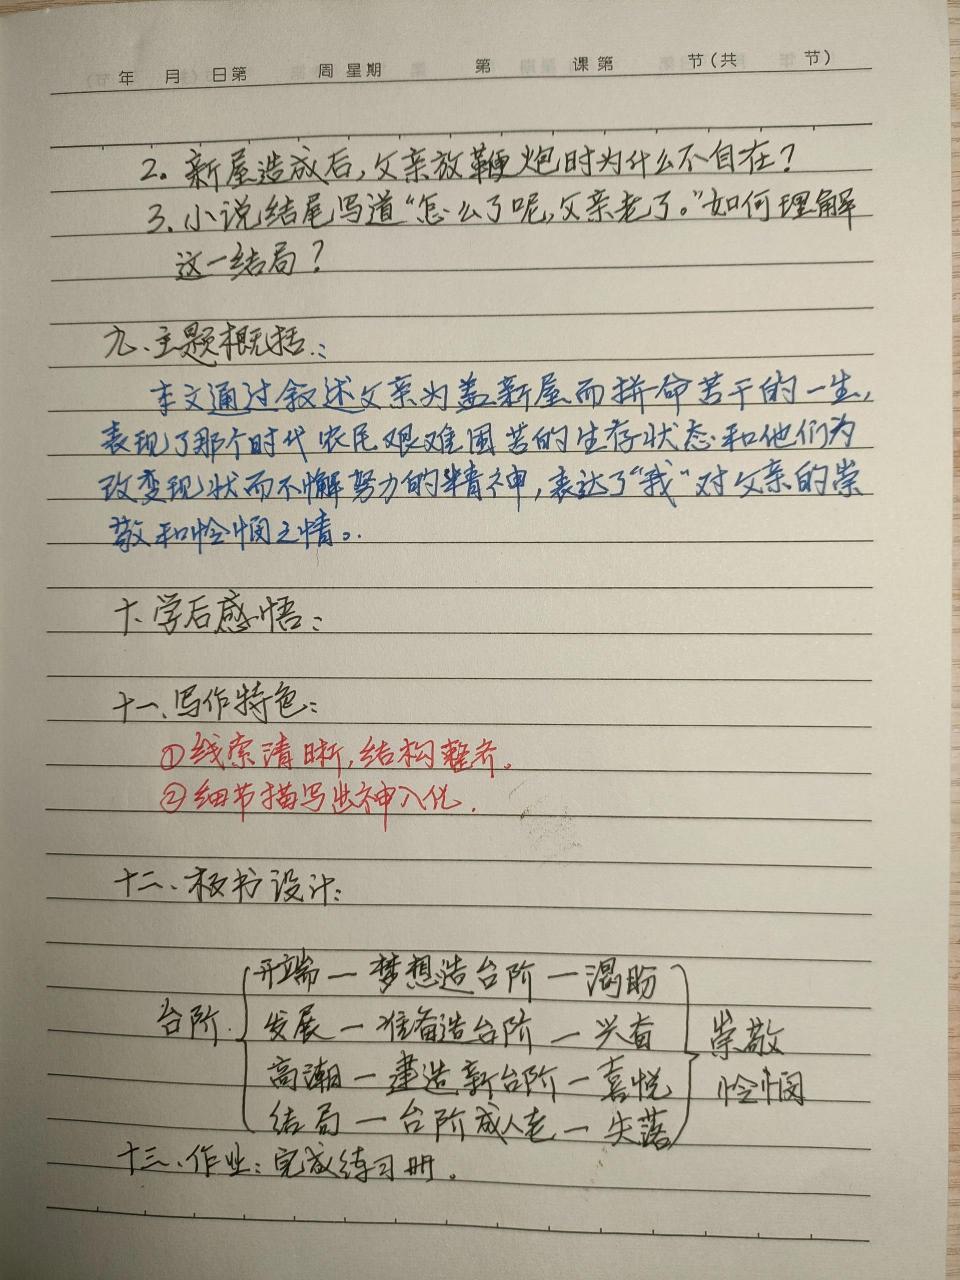 年 月 日第 周 星期 第 课第 节(共 节)
2. 新屋造成后,父亲放鞭炮时为什么不自在?
3. 小说结尾写道“怎么了呢,父亲老了。”如何理解
这一结局?
九、主题概括:
本文通过叙述父亲为盖新屋而拼命苦干的一生,
表现了那个时代农民艰难困苦的生存状态和他们为
改变现状而不懈努力的精神,表达了“我”对父亲的崇
敬和怜悯之情。
十、学后感悟:
十一、写作特色:
①线索清晰,结构整齐。
②细节描写出神入化.
十二、板书设计:
开端—梦想造台阶—渴盼
台阶 发展—准备造台阶—兴奋 崇敬
高潮—建造新台阶—喜悦 怜悯
结局—台阶成人老—失落
十三、作业:完成练习册.